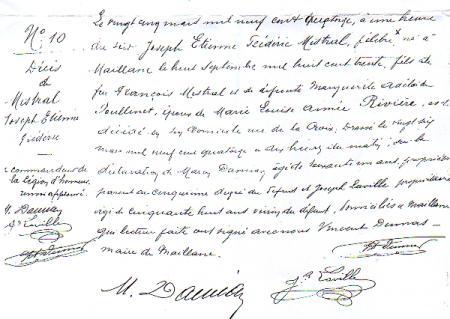 N° 10
Décès
de
Mistral
Joseph Etienne
Frédéric
commandeur de
la Légion d'honneur
M. Dauvan
Jh Laville
Le vingt cinq mars mil neuf cent quatorze, à une heure
du soir Joseph Etienne Frédéric Mistral, félibre x né à
Maillane le huit septembre mil huit cent trente, fils de
feu François Mistral et de défunte Marguerite Adélaïde
Poullinet, époux de Marie Louise Aimée Rivière, est
décédé en son domicile rue de la Croix, Dressé le vingt six
mars mil neuf cent quatorze à dix heures du matin, sur la
déclaration de âgé de soixante un ans, propriétaire
parent au cinquième degré du défunt et Joseph Laville propriétaire
âgé de cinquante huit ans voisin du défunt, domiciliés à Maillane
qui lecture faite ont signé avec nous Vincent
maire de Maillane.
Jh Laville